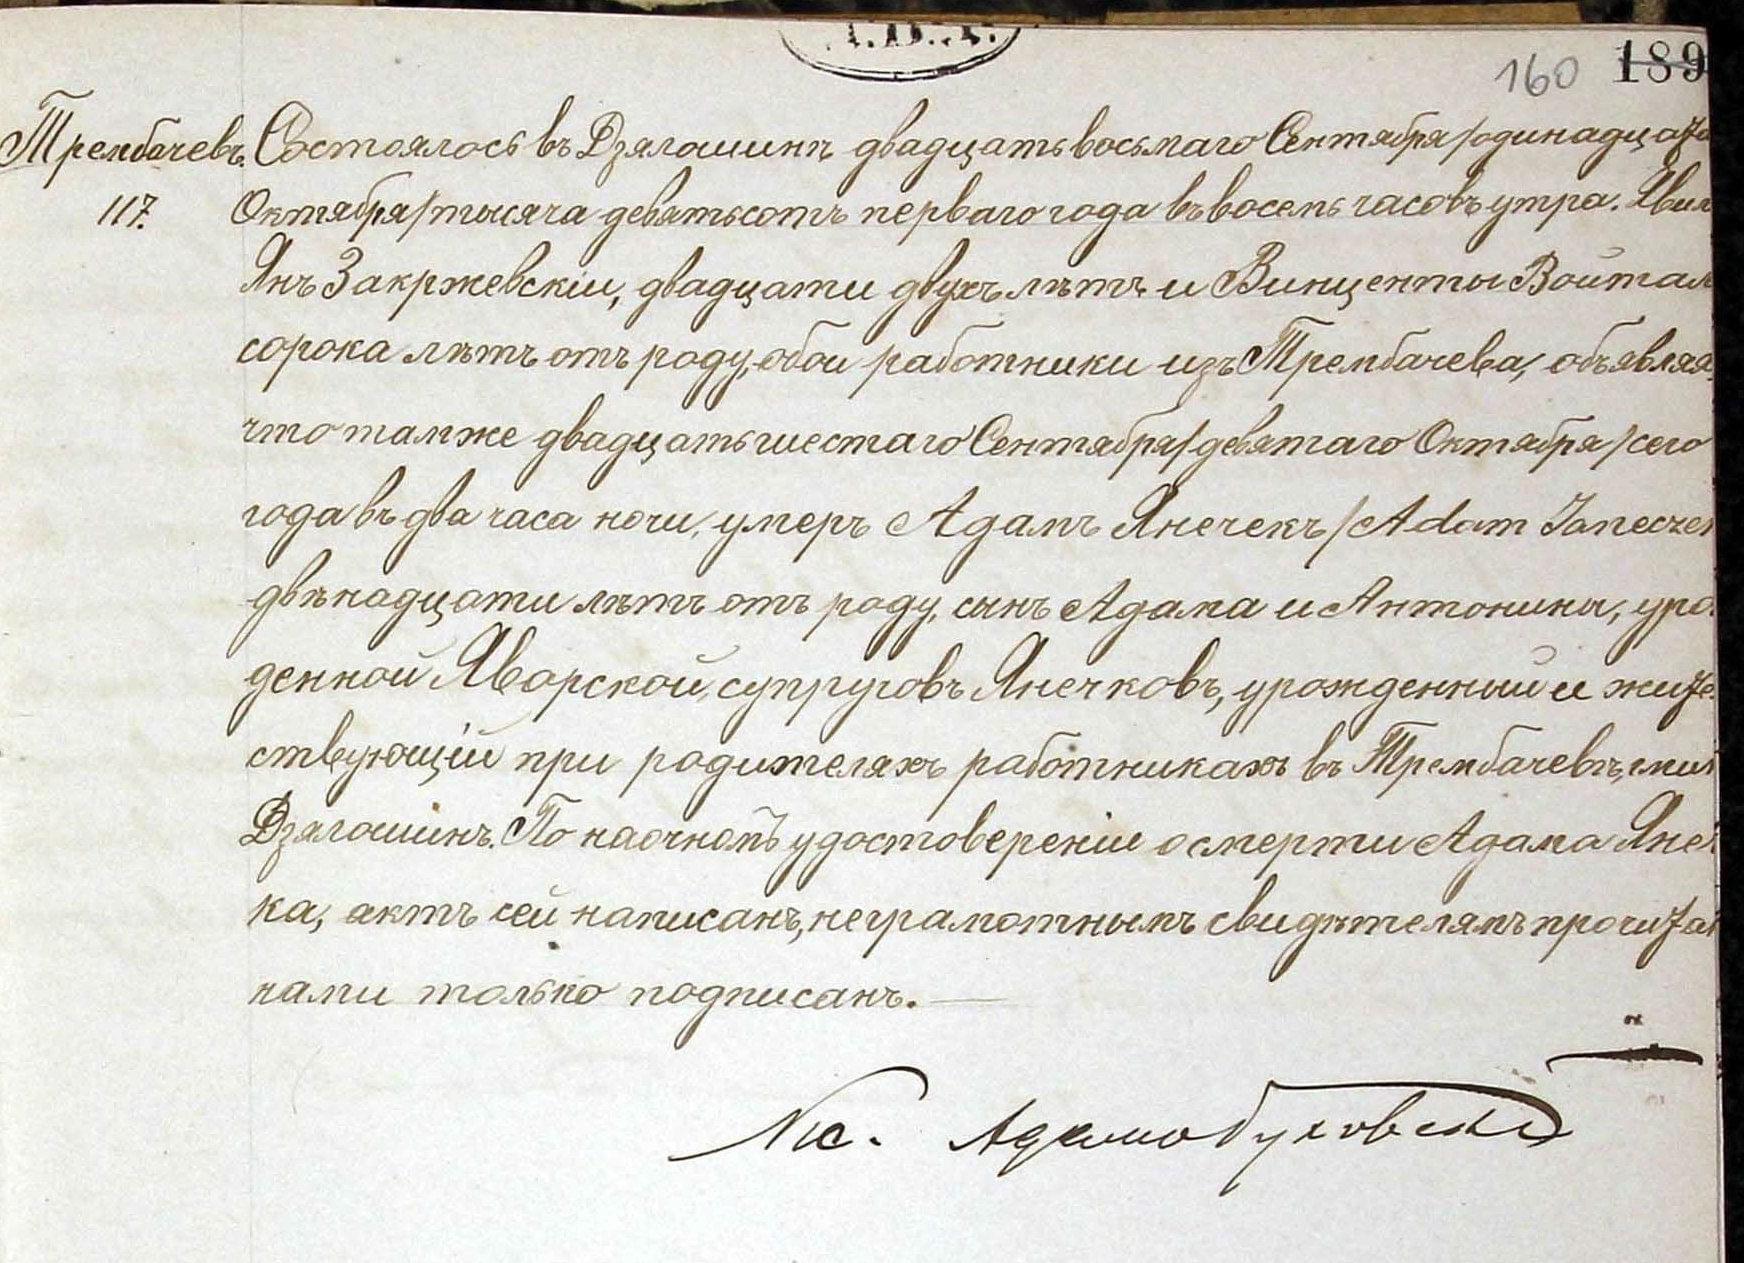 160 189
Трембачевъ. Состоялось въ Дзялошинѣ двадцать восьмаго Сентября /одинадцата
117. Октября/ тысяча девятьсотъ перваго года въ восемь часовъ утра. Явил
Янъ Закржевскій, двадцати двухъ лѣтъ и Винценты Войтал
сорока лѣтъ отъ роду, обои работники изъ Трембачева, объявляя,
что тамже двадцать шестаго Сентября /девятаго Октября/ сего
года въ два часа ночи, умеръ Адамъ Янечекъ /Adam Janeczek
двѣнадцати лѣтъ отъ роду, сынъ Адама и Антонины, уро
денной Яворской, супруговъ Янечковъ, урожденный и жите
ствующій при родителяхъ работникахъ въ Трембачевѣ, гмин
Дзялошинъ. По наочномъ удостовереніи о смерти Адама Янеч
ка, актъ сей написанъ, неграмотнымъ свидѣтелямъ прочитан
нами только подписанъ.
Кс.